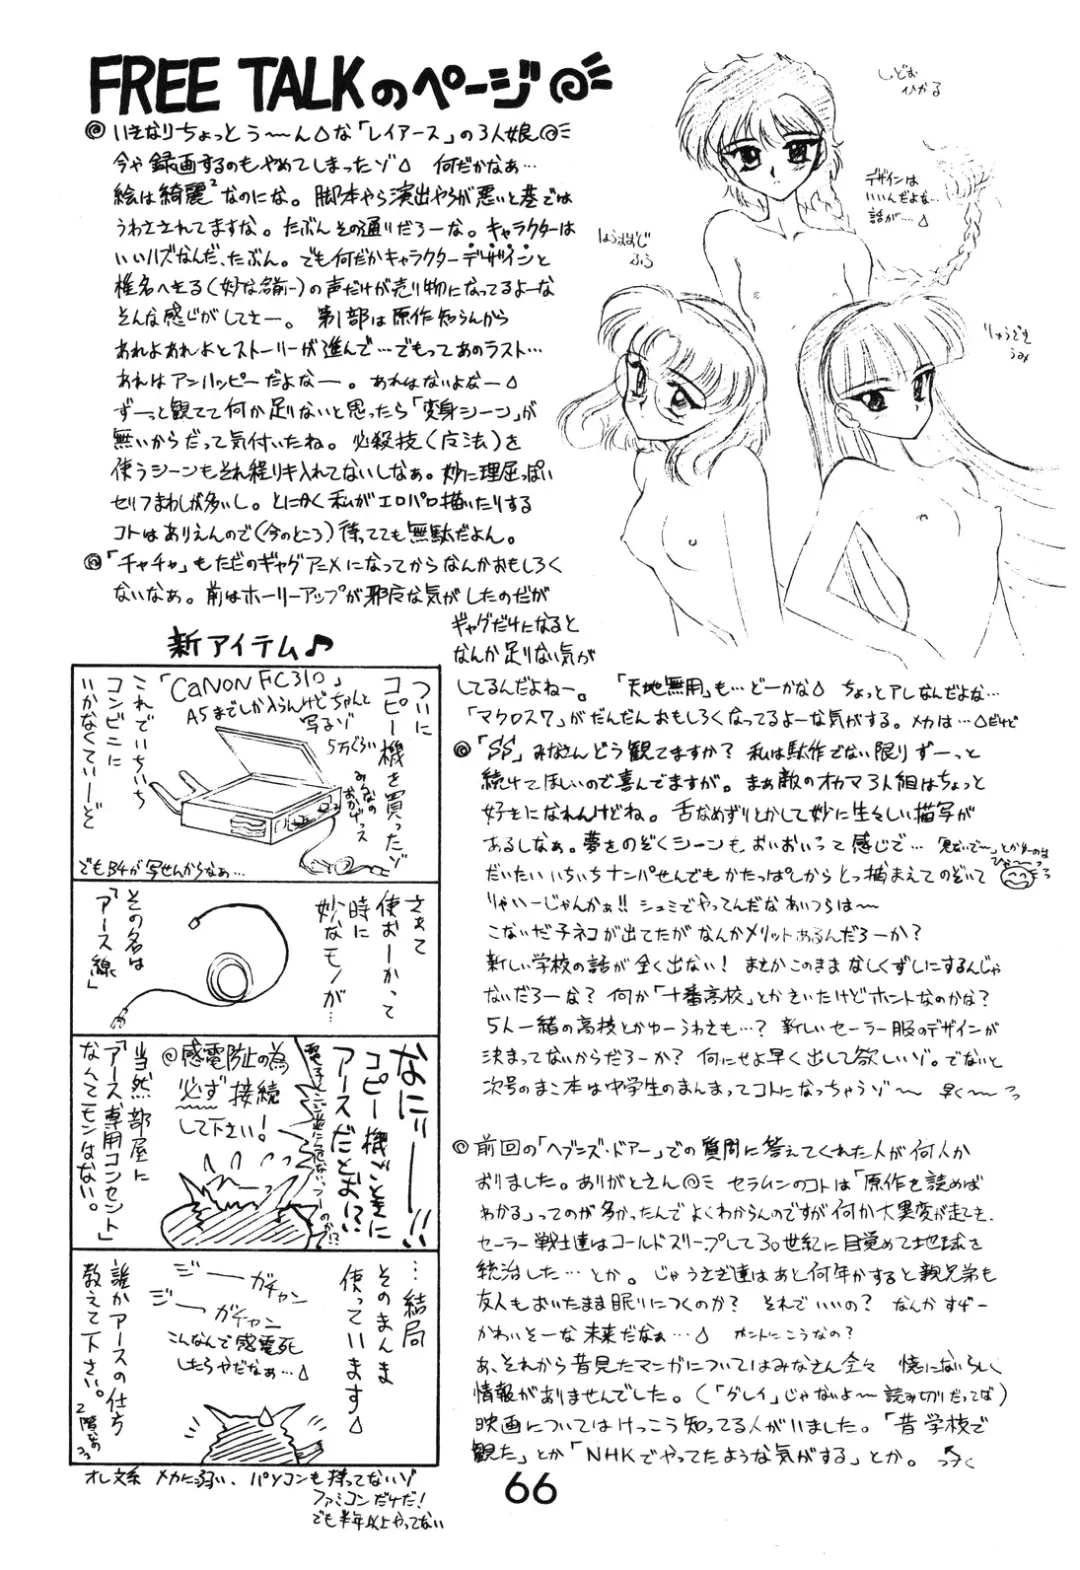 FREE TALKのページ
◎いきなりちょっとう〜〜ん△な「レイアース」の3人娘
今や録画するのもやめてしまったゾ△ 何だかなぁ…
絵は綺麗²なのにな。脚本やら演出やらが悪いと巷では
うわさされてますな。たぶんその通りだろーな。キャラクターは
いいハズなんだ、たぶん。でも何だかキャラクターデザインと
椎名へきる(妙な名前ー)の声だけが売り物になってるよーな
そんな感じがしてさー。 第1部は原作知らんから
あれよあれよとストーリーが進んで…でもってあのラスト…
あれはアンハッピーだよなー。あれはないよなー△
ずーっと観てて何か足りないと思ったら「変身シーン」が
無いからだって気付いたね。必殺技(魔法)を
使うシーンもそれ程リキ入れてないしなぁ。妙に理屈っぽい
セリフまわしが多いし。とにかく私がエロパロ描いたりする
コトはありえんので(今のところ)待ってても無駄だよん。
◎「チャチャ」もただのギャグアニメになってからなんかおもしろく
ないなぁ。前はホーリーアップが邪魔な気がしたのだが
ギャグだけになると
なんか足りない気が
してるんだよねー。 「天地無用」も…どーかな△ ちょっとアレなんだよな…
「マクロス7」がだんだんおもしろくなってるよーな気がする。メカは…△だけど
しどお
ひかる
デザインは
いいんだよな…
話が…△
ほうおうじ
ふう
りゅうざき
うみ
新アイテム♪
ついに
コピー機を買ったゾ
みなのおかげっス
「CANON FC310」
A5までしか入らんけどちゃんと
写るゾ
5万ぐらい
これでいちいち
コンビニに
いかなくてい〜ど
でもB4が写せんからなぁ…
さぁて
使おーかって
時に
妙なモノが…
その名は
「アース線」
なにィ――!!
コピー機ごときに
アースだとお!?
◎感電防止の為
必ず接続
して下さい!
当然部屋に
「アース専用コンセント」
なんてモンはない。
…結局
そのまんま
使っています△
ジーーガチャン
ジーーガチャン
こんなんで感電死
したらやだなぁ…△
誰かアースの仕方
教えて下さい。
2階なの
オレ文系 メカに弱い、パソコンも持ってないゾ
ファミコンだけだ!
でも半年以上やってない
◎「SS」みなさんどう観てますか? 私は駄作でない限りずーっと
続けてほしいので喜んでますが。まあ敵のオカマ3人組はちょっと
好きになれんけどね。舌なめずりとかして妙に生々しい描写が
あるしなぁ。夢をのぞくシーンもおいおいって感じで…
だいたいいちいちナンパせんでもかたっぱしからとっ捕まえてのぞいて
りゃいーじゃんかぁ!! シュミでやってんだなあいつらは〜〜
こないだ子ネコが出てたがなんかメリットあるんだろーか?
新しい学校の話が全く出ない! まさかこのままなしくずしにするんじゃ
ないだろーな? 何か「十番高校」とかきいたけどホントなのかな?
5人一緒の高校とかゆーうわさも…? 新しいセーラー服のデザインが
決まってないからだろーか? 何にせよ早く出して欲しいゾ。でないと
次号のまこ本は中学生のまんまってコトになっちゃうゾ〜〜 早く〜〜っ
◎前回の「ヘブンズ・ドアー」での質問に答えてくれた人が何人か
おりました。ありがとさん セラムンのコトは「原作を読めば
わかる」ってのが多かったんでよくわからんのですが何か大異変が起きて、
セーラー戦士達はコールドスリープして30世紀に目覚めて地球を
統治した…とか。じゃうさぎ達はあと何年かすると親兄弟も
友人もおいたまま眠りにつくのか? それでいいの? なんかすげー
かわいそーな未来だなぁ…△ ホントにこうなの?
あ、それから昔見たマンガについてはみなさん全々
情報がありませんでした。(「グレイ」じゃないよ〜読み切りだってば)
映画についてはけっこう知ってる人がいました。「昔学校で
観た」とか「NHKでやってたような気がする」とか。 つづく
66